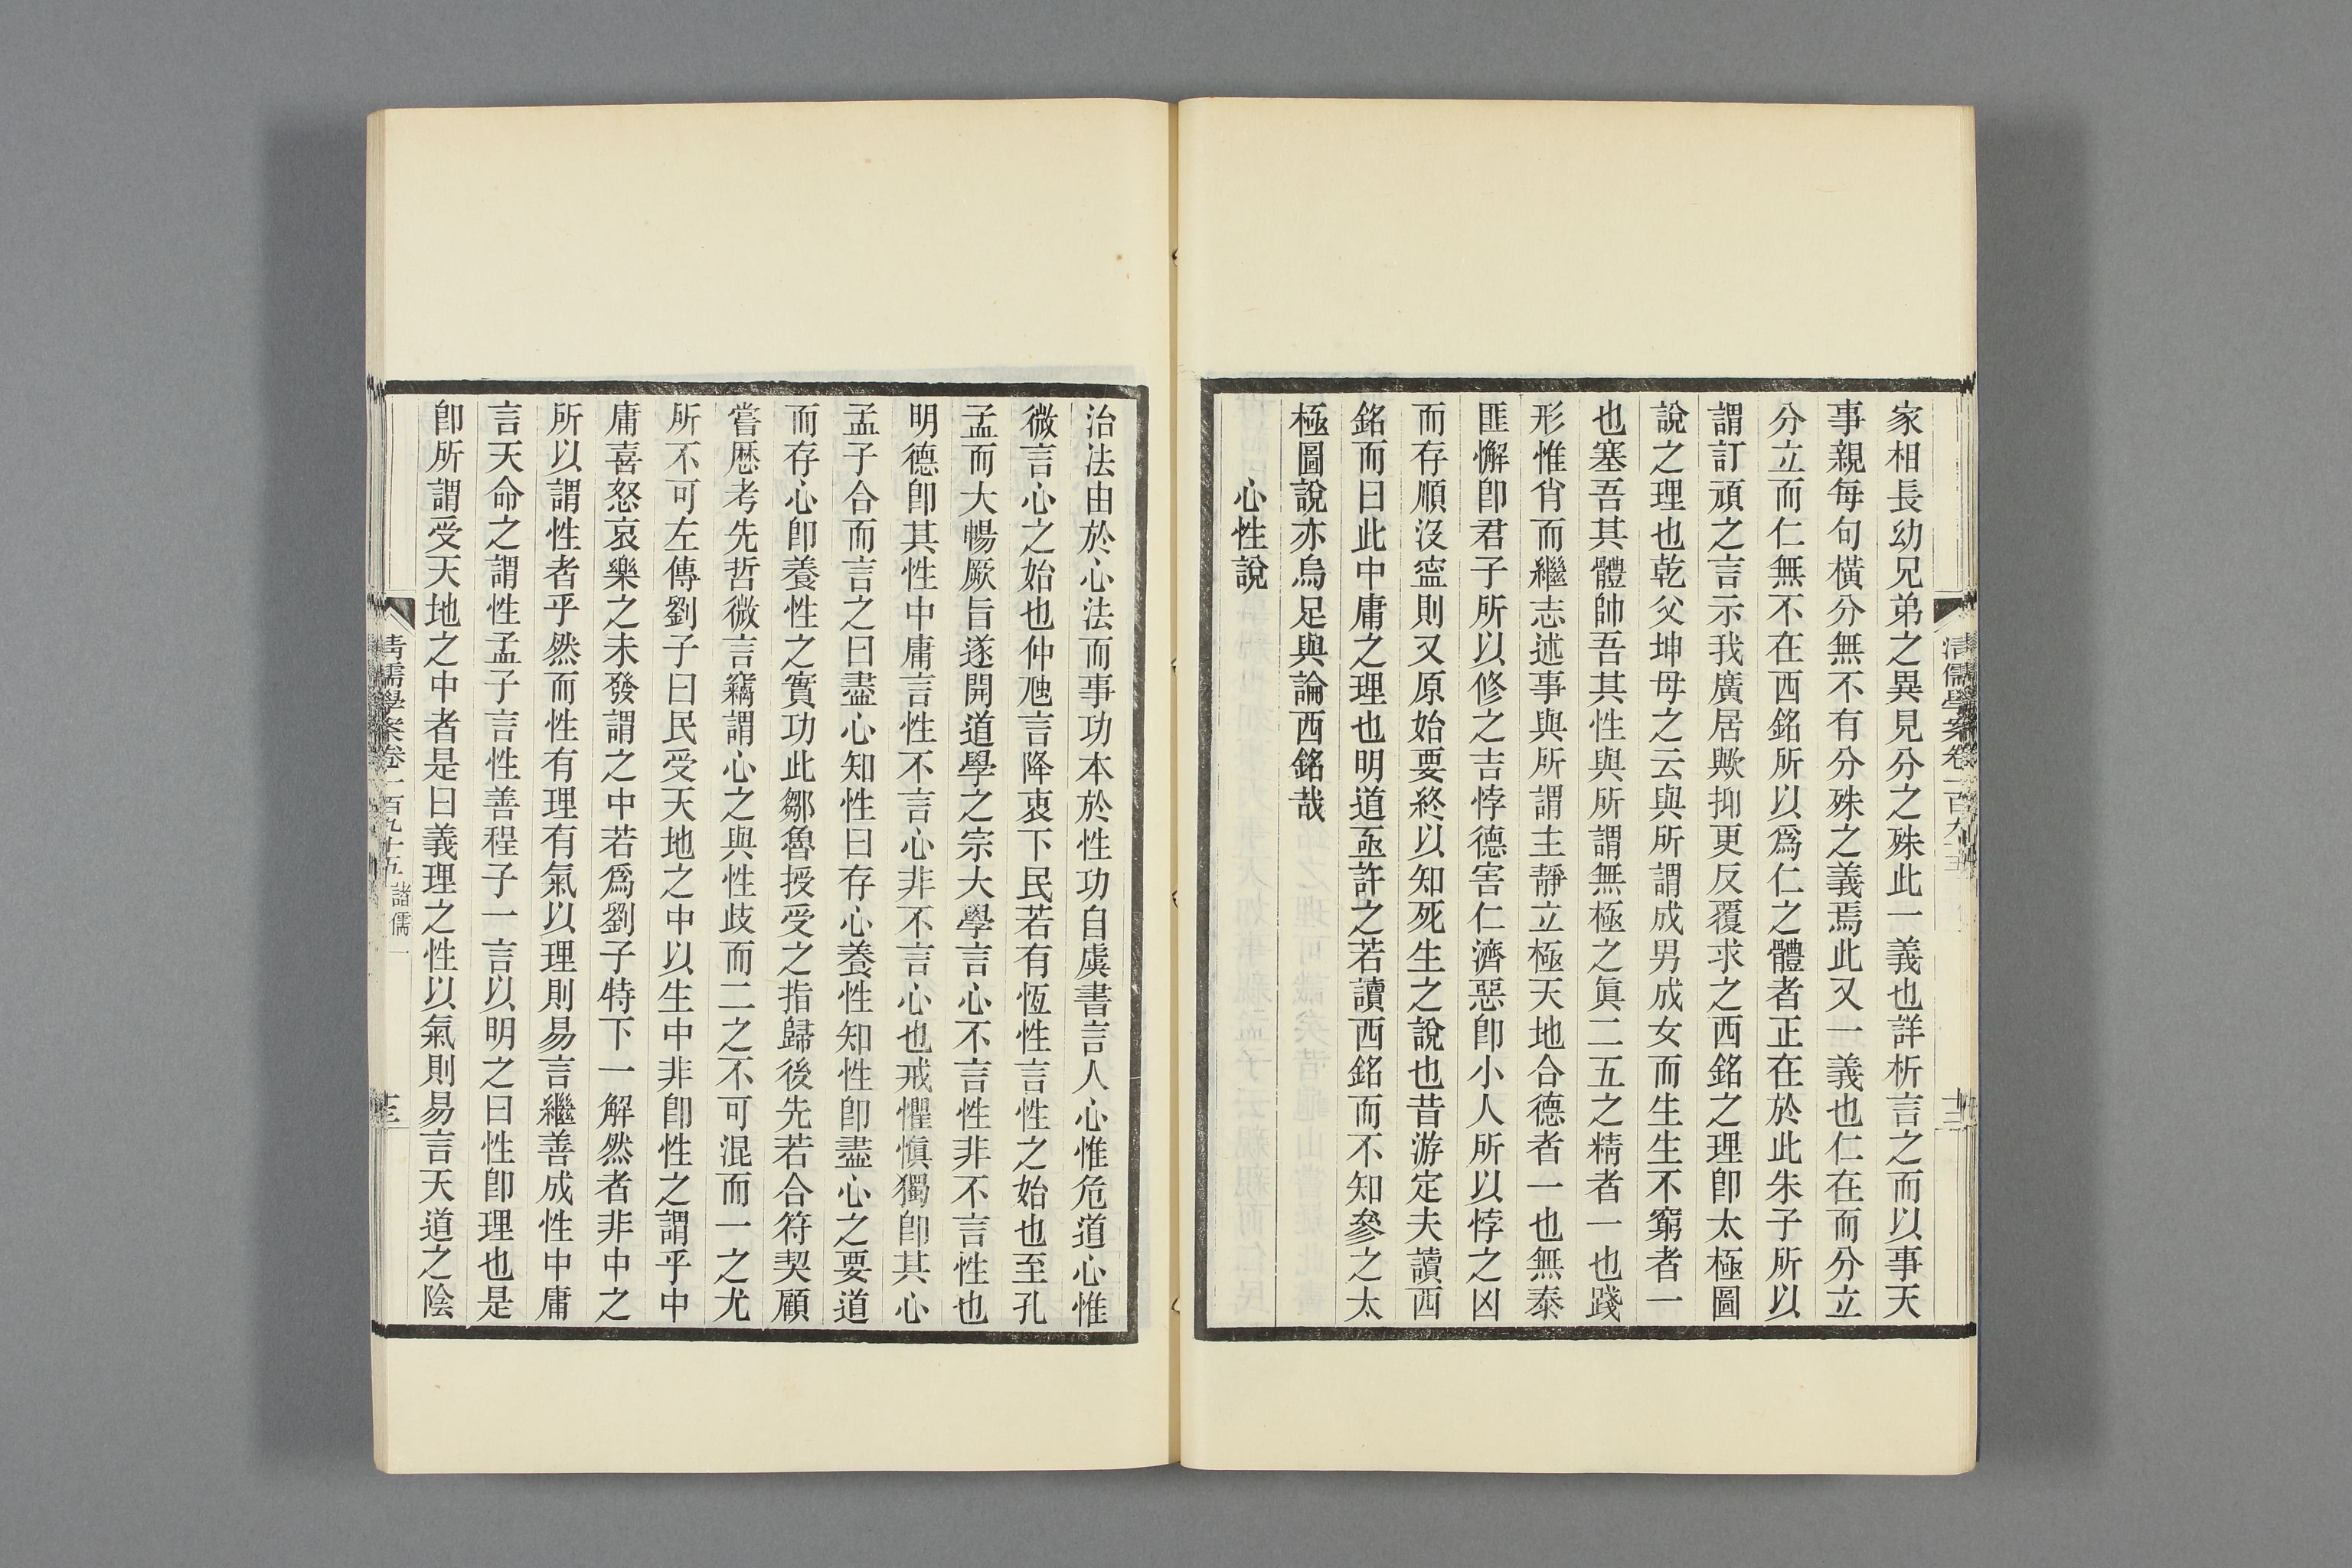 家相長幼兄弟之異見分之殊此一義也詳析言之而以事天
事親每句橫分無不有分殊之義焉此又一義也仁在而分立
分立而仁無不在西銘所以爲仁之體者正在於此朱子所以
謂訂頑之言示我廣居歟抑更反覆求之西銘之理卽太極圖
說之理也乾父坤母之云與所謂成男成女而生生不窮者一
也塞吾其體帥吾其性與所謂無極之眞二五之精者一也踐
形惟肖而繼志述事與所謂主靜立極天地合德者一也無忝
匪懈卽君子所以修之吉悖德害仁濟惡卽小人所以悖之凶
而存順沒寍則又原始要終以知死生之說也昔游定夫讀西
銘而曰此中庸之理也明道亟許之若讀西銘而不知參之太
極圖說亦烏足與論西銘哉
心性說
清儒學案卷一百九十五
治法由於心法而事功本於性功自虞書言人心惟危道心惟
微言心之始也仲虺言降衷下民若有恆性言性之始也至孔
孟而大暢厥旨遂開道學之宗大學言心不言性非不言性也
明德卽其性中庸言性不言心非不言心也戒懼愼獨卽其心
孟子合而言之曰盡心知性曰存心養性知性卽盡心之要道
而存心卽養性之實功此鄒魯授受之指歸後先若合符契顧
嘗歷考先哲微言竊謂心之與性歧而二之不可混而一之尤
所不可左傳劉子曰民受天地之中以生中非卽性之謂乎中
庸喜怒哀樂之未發謂之中若爲劉子特下一解然者非中之
所以謂性者乎然而性有理有氣以理則易言繼善成性中庸
言天命之謂性孟子言性善程子一言以明之曰性卽理也是
卽所謂受天地之中者是曰義理之性以氣則易言天道之陰
清儒學案卷一百九十五 諸儒一
十三